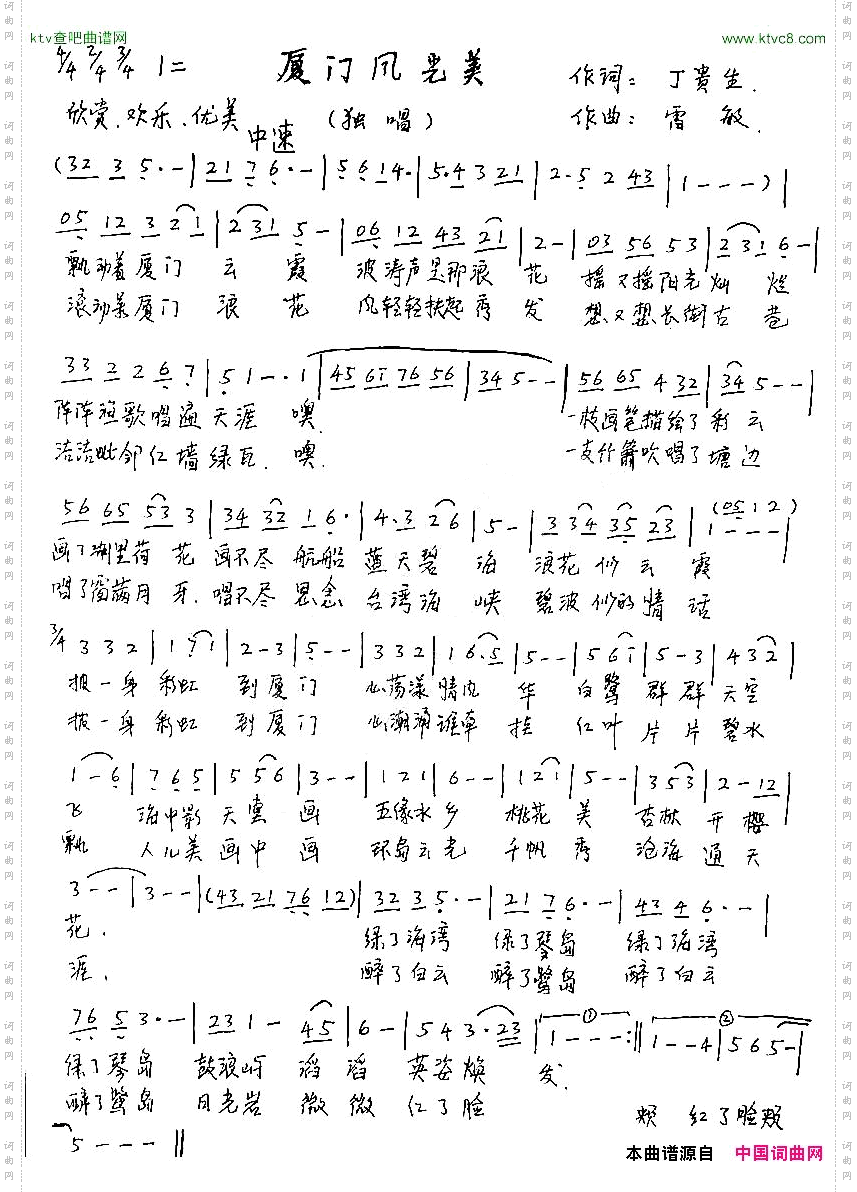 ktv查吧曲谱网 www.ktvc8.com
4/4 2/4 3/4 1=
厦门风光美
作词：丁贵生.
欣赏、欢乐、优美 中速
（独唱）
作曲：雷敏.
(32 3 5·-|21 7 6·-|5 6 14·|5·4 3 21|2·5 2 43|1---)|
05 12 3 21|2 31 5-|06 12 43 21|2-|03 56 53|2 31 6-|
飘动着厦门云霞 波涛声是那浪花 摇又摇阳光灿烂
滚动着厦门浪花 风轻轻扶起秀发 想又想长街古巷
33 2 2 6 7|5 1--·1|45 61 76 56|34 5--|56 65 4 32|34 5--|
阵阵渔歌唱遍天涯 噢. 一枝画笔描绘了彩云
洁洁毗邻红墙绿瓦. 噢. 一支竹箫吹唱了塘边
56 65 53 3|34 32 1 6·|4·3 26|5-|3 34 35 23|(05 12) 1---|
画了湖里荷花 画不尽航船蓝天碧海 浪花似云霞
唱了窗满月牙. 唱不尽思念台湾海峡 碧波似的情话
3/4 3 3 2|1 7 1|2-3|5--|3 3 2|1 6·5|5--|5 6 1|5-3|4 3 2|
披一身彩虹到厦门 心荡漾情风华 白鹭群群天空
披一身彩虹到厦门 心潮涌谁牵挂 红叶片片碧水
1-6|7 6 5|5 5 6|3--|1 2 1|6--|1 2 1|5--|3 5 3|2-12|
飞 海中影天寞画 五缘水乡桃花美 杏林开樱
飘 人儿美画中画 环岛云光千帆秀 沧海通天
3--|3--|(43 21 76 12)|32 3 5·-|21 7 6·-|43 4 6·-|
花. 绿了海湾 绿了琴岛 绿了海湾
涯. 醉了白云 醉了鹭岛 醉了白云
76 5 3·-|23 1- 45|6-|5 4 3·23|① 1---:||② 1--4|5 6 5-|
绿了琴岛 鼓浪屿滔滔英姿焕发.
醉了鹭岛 日光岩微微红了脸
颊 红了脸颊
5---||
本曲谱源自 中国词曲网